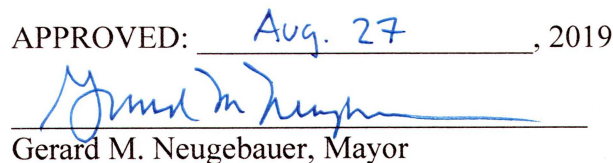 APPROVED: Aug. 27, 2019
Gerard M Neugebauer
Gerard M. Neugebauer, Mayor